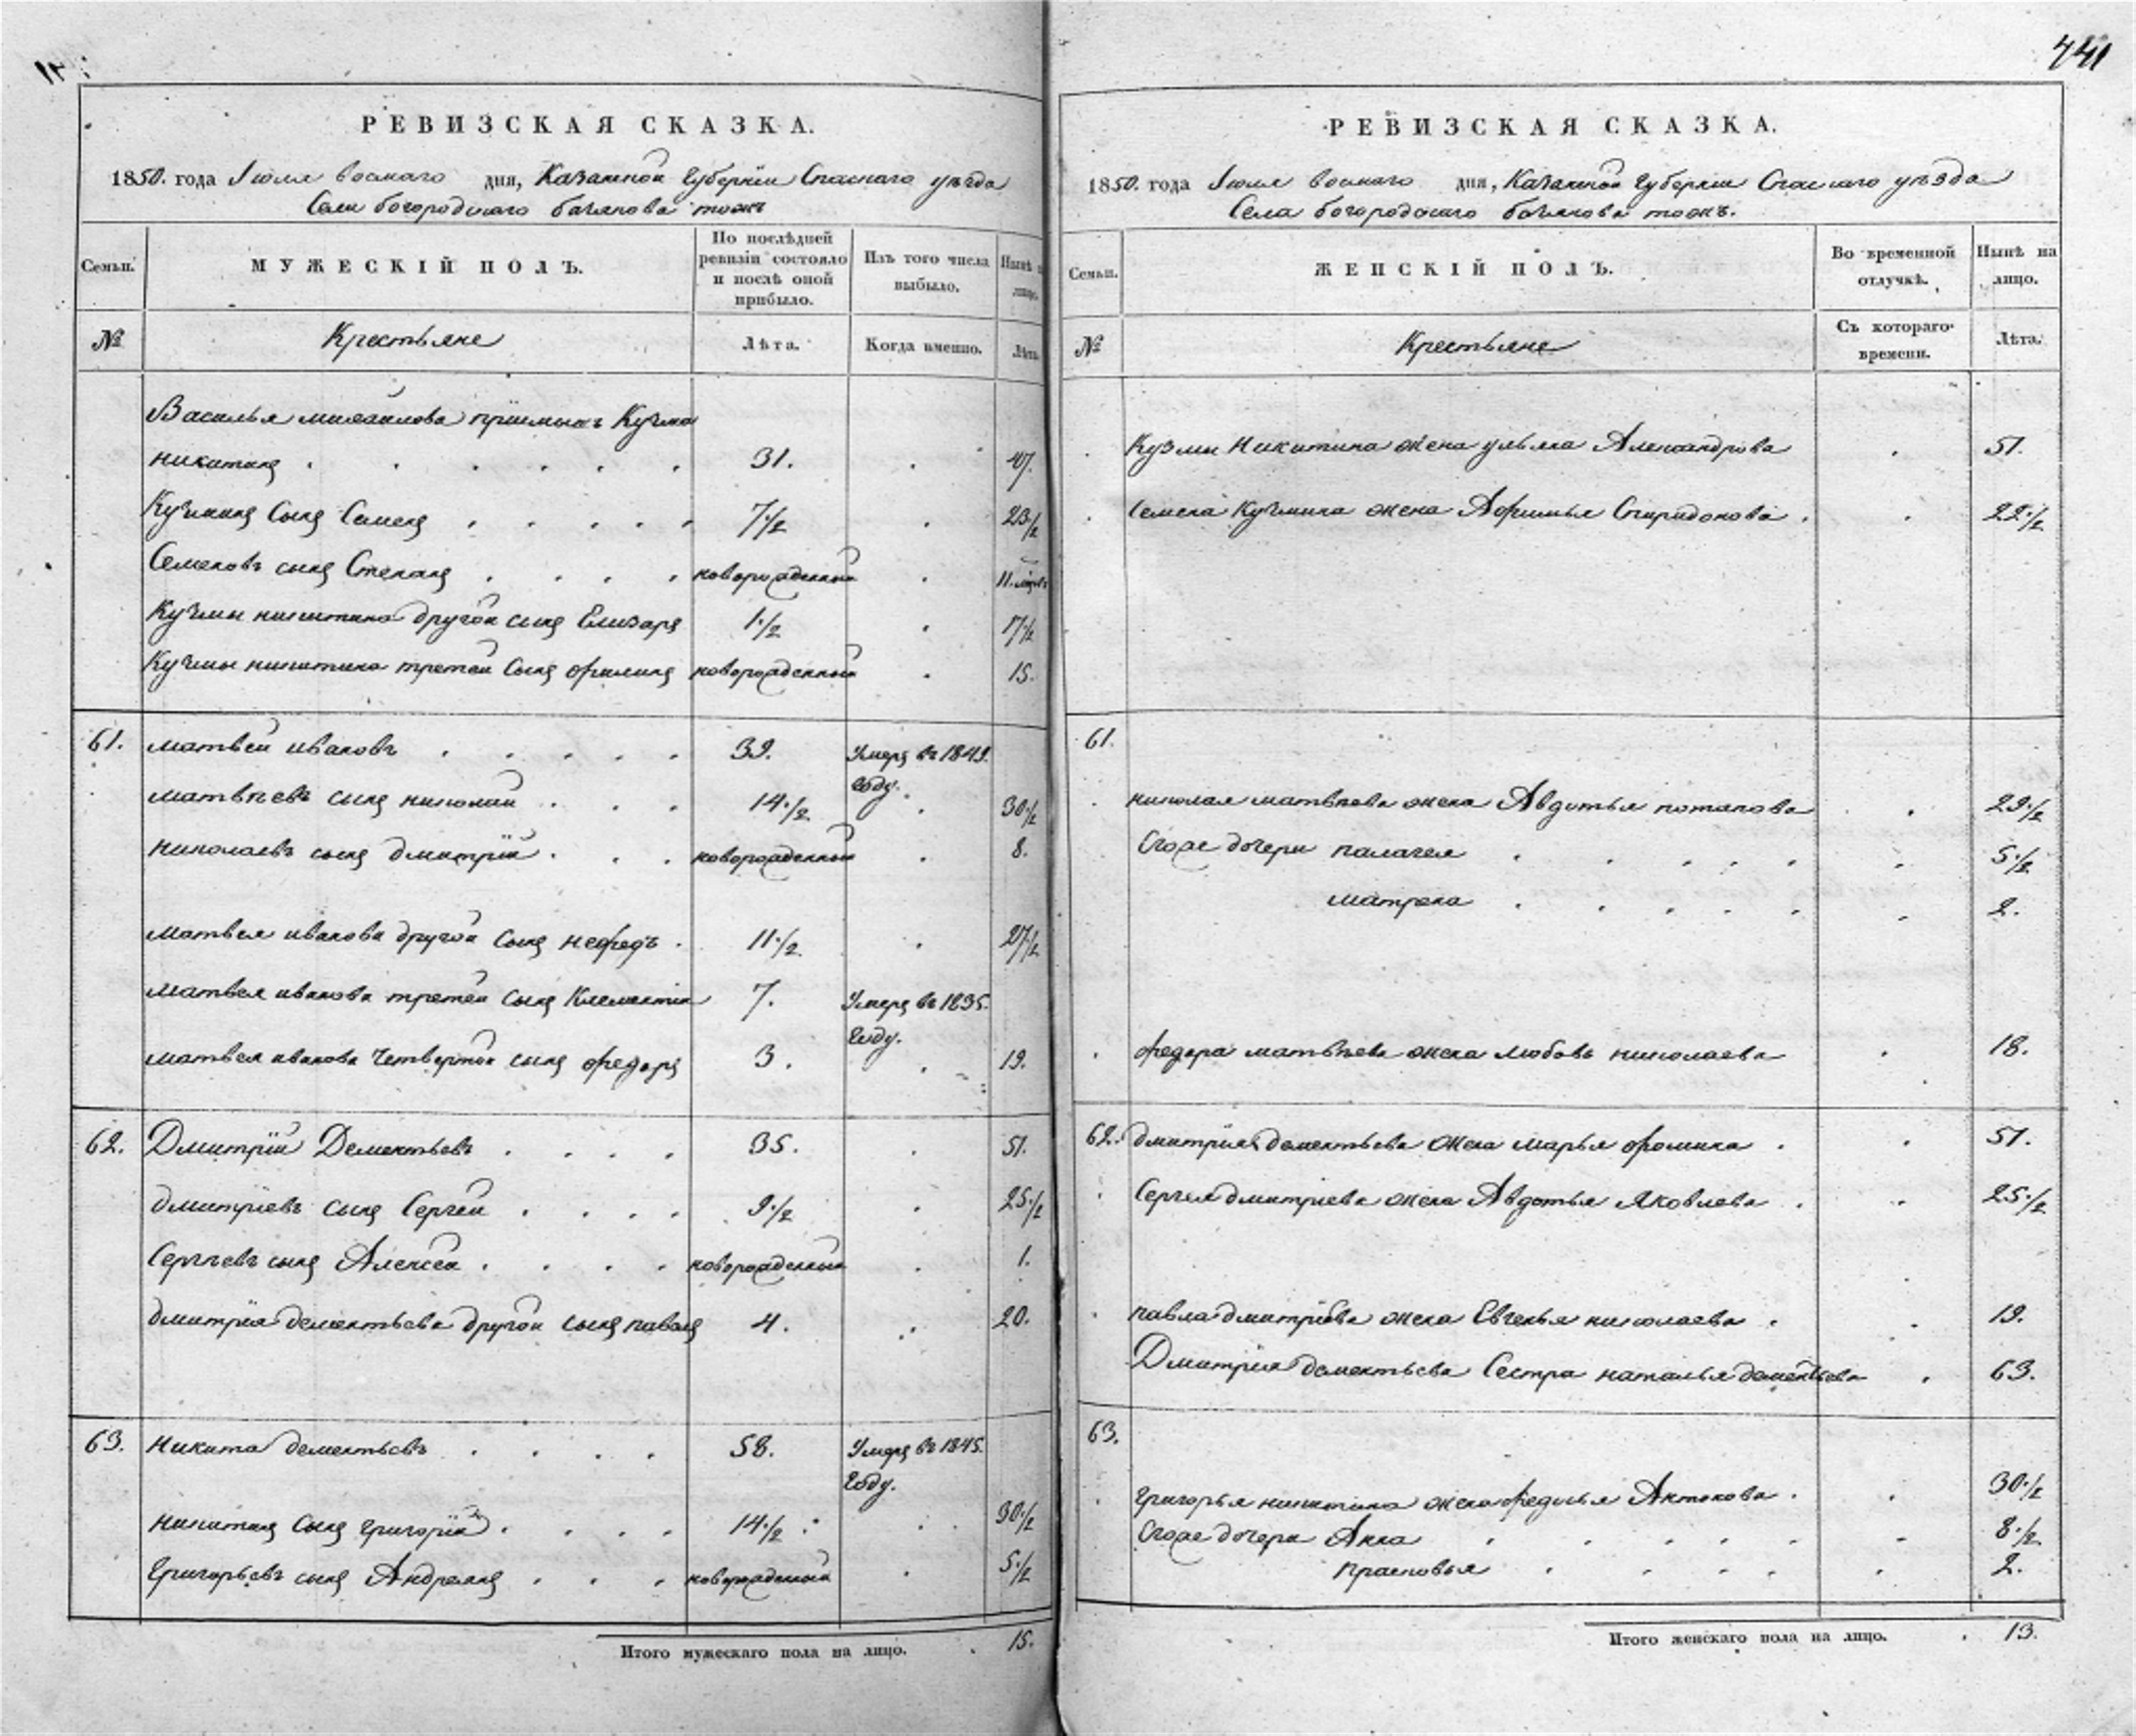 441
РЕВИЗСКАЯ СКАЗКА.
1850. года Июля восмаго дня, Казанской Губернiи Спаскаго уѣзда
Села богородскаго
Семьи.
МУЖЕСКIЙ ПОЛЪ.
По послѣдней ревизiи состояло и послѣ оной прибыло.
Изъ того числа выбыло.
Нынѣ на лицо.
№
Крестьяне
Лѣта.
Когда именно.
Лѣта.
Василья михаилова прiимышъ Кузма
никитинъ 31. 47.
Кузминъ Сынъ Семенъ 7 1/2 23 1/2
Семеновъ сынъ Степанъ новорожденный 11. мцовъ
Кузмы никитина другой сынъ Елизаръ 1 1/2 17 1/2
Кузмы никитина третей Сынъ филипъ новорожденный 15.
61. матвей ивановъ 39. Умеръ въ 1849.
году.
матвѣевъ сынъ николай 14 1/2 30 1/2
николаевъ сынъ дмитрiй новорожденный 8.
матвея иванова другой Сынъ нефедъ 11 1/2 27 1/2
матвея иванова третей сынъ Клементiй 7. Умеръ въ 1835.
году.
матвея иванова четвертой сынъ федоръ 3. 19.
62. Дмитрiй Дементьевъ 35. 51.
дмитрiевъ сынъ Сергей 9 1/2 25 1/2
Сергѣевъ сынъ Алексей новорожденный 1.
дмитрiя дементьева другой сынъ павелъ 4. 20.
63. Никита дементьевъ 58. Умеръ въ 1845.
году.
никитинъ Сынъ григорiй 14 1/2 30 1/2
Григорьевъ сынъ Андреянъ новорожденный 5 1/2
Итого мужескаго пола на лицо. 15.
РЕВИЗСКАЯ СКАЗКА.
1850. года Июля восмаго дня, Казанской Губернiи Спаскаго уѣзда
Села богородскаго
Семьи.
ЖЕНСКIЙ ПОЛЪ.
Во временной отлучкѣ.
Нынѣ на лицо.
№
Крестьяне
Съ котораго времени.
Лѣта.
Кузмы Никитина жена ульяна Александрова 51.
Семена Кузмина жена Афимья Спиридонова 22 1/2
61.
николая матвѣева жена Авдотья потапова 29 1/2
Ево же дочери палагея 5 1/2
матрена 2.
федора матвѣева жена любовь николаева 18.
62. дмитрiя дементьева жена марья фомина 51.
Сергея дмитриева жена Авдотья Яковлева 25 1/2
павла дмитрiева жена Евгенья николаева 19.
Дмитрiя дементьева Сестра наталья дементьева 63.
63.
Григорья никитина жена федосья Антонова 30 1/2
Ево же дочери Анна 8 1/2
прасковья 2.
Итого женскаго пола на лицо. 13.